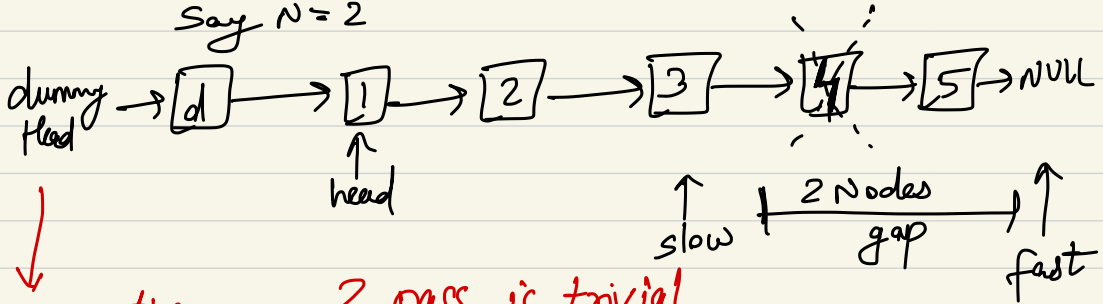 Say N = 2
dummy Head → d → 1 → 2 → 3 → 4 → 5 → NULL
head
slow
2 Nodes gap
fast
2 pass is trivial